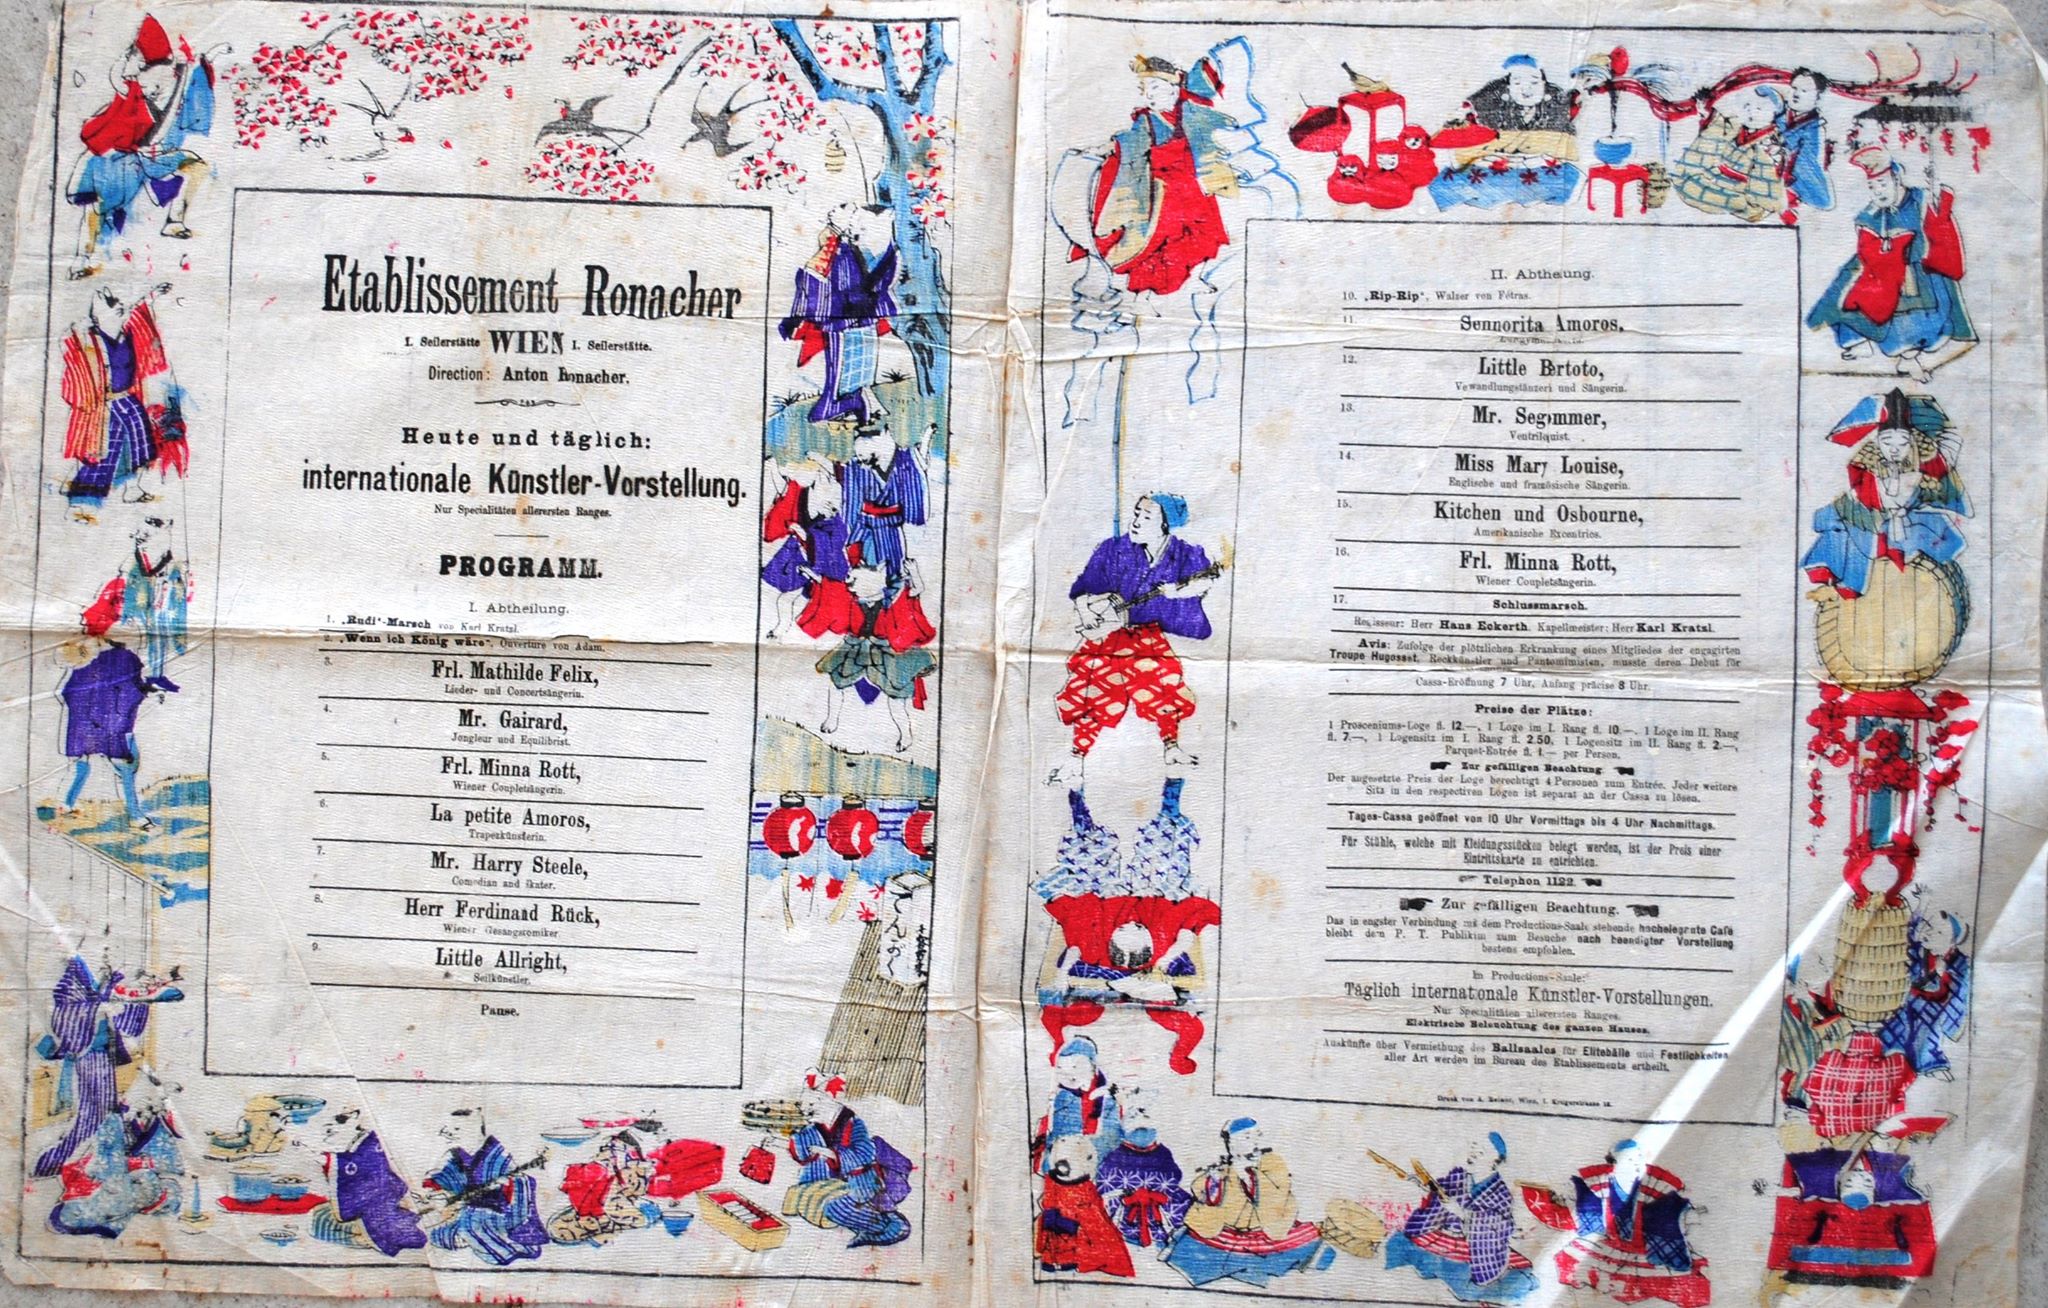 Etablissement Ronacher
I. Seilerstätte WIEN I. Seilerstätte.
Direction: Anton Ronacher.
Heute und täglich:
internationale Künstler-Vorstellung.
Nur Specialitäten allerersten Ranges.
PROGRAMM.
I. Abtheilung.
1. „Rudi"-Marsch von Karl Kratzl.
2. „Wenn ich König wäre", Ouverture von Adam.
3.
Frl. Mathilde Felix,
Lieder- und Concertsängerin.
4.
Mr. Gairard,
Jongleur und Equilibrist.
5.
Frl. Minna Rott,
Wiener Coupletsängerin.
6.
La petite Amoros,
Trapezkünstlerin.
7.
Mr. Harry Steele,
Comedian and skater.
8.
Herr Ferdinand Rück,
Wiener Gesangscomiker
9.
Little Allright,
Seilkünstler.
Pause.
II. Abtheilung.
10. „Rip-Rip", Walzer von Fétras.
11.
Sennorita Amoros,
12.
Little Bertoto,
Verwandlungstänzeri und Sängerin.
13.
Mr. Segommer,
Ventriloquist.
14.
Miss Mary Louise,
Englische und französische Sängerin.
15.
Kitchen und Osbourne,
Amerikanische Excentrics.
16.
Frl. Minna Rott,
Wiener Coupletsängerin.
17.
Schlussmarsch.
Regisseur: Herr Hans Eckerth. Kapellmeister: Herr Karl Kratzl.
Avis: Zufolge der plötzlichen Erkrankung eines Mitgliedes der engagirten
Troupe Hugosset, Reckkünstler und Pantomimisten, musste deren Debut für
Cassa-Eröffnung 7 Uhr, Anfang präcise 8 Uhr.
Preise der Plätze:
1 Prosceniums-Loge fl. 12.—, 1 Loge im I. Rang fl. 10.—, 1 Loge im II. Rang
fl. 7.—, 1 Logensitz im I. Rang fl. 2.50, 1 Logensitz im II. Rang fl. 2.—,
Parquet-Entrée fl. 1.— per Person.
Zur gefälligen Beachtung.
Der angesetzte Preis der Loge berechtigt 4 Personen zum Entrée. Jeder weitere
Sitz in den respectiven Logen ist separat an der Cassa zu lösen.
Tages-Cassa geöffnet von 10 Uhr Vormittags bis 4 Uhr Nachmittags.
Für Stühle, welche mit Kleidungsstücken belegt werden, ist der Preis einer
Eintrittskarte zu entrichten.
Telephon 1122.
Zur gefälligen Beachtung.
Das in engster Verbindung mit dem Productions-Saale stehende hochelegante Café
bleibt dem P. T. Publikum zum Besuche nach beendigter Vorstellung
bestens empfohlen.
Im Productions-Saale:
Täglich internationale Künstler-Vorstellungen.
Nur Specialitäten allerersten Ranges.
Elektrische Beleuchtung des ganzen Hauses.
Auskünfte über Vermiethung des Ballsaales für Elitebälle und Festlichkeiten
aller Art werden im Bureau des Etablissements ertheilt.
Druck von A. Reisser, Wien, I. Krugerstrasse